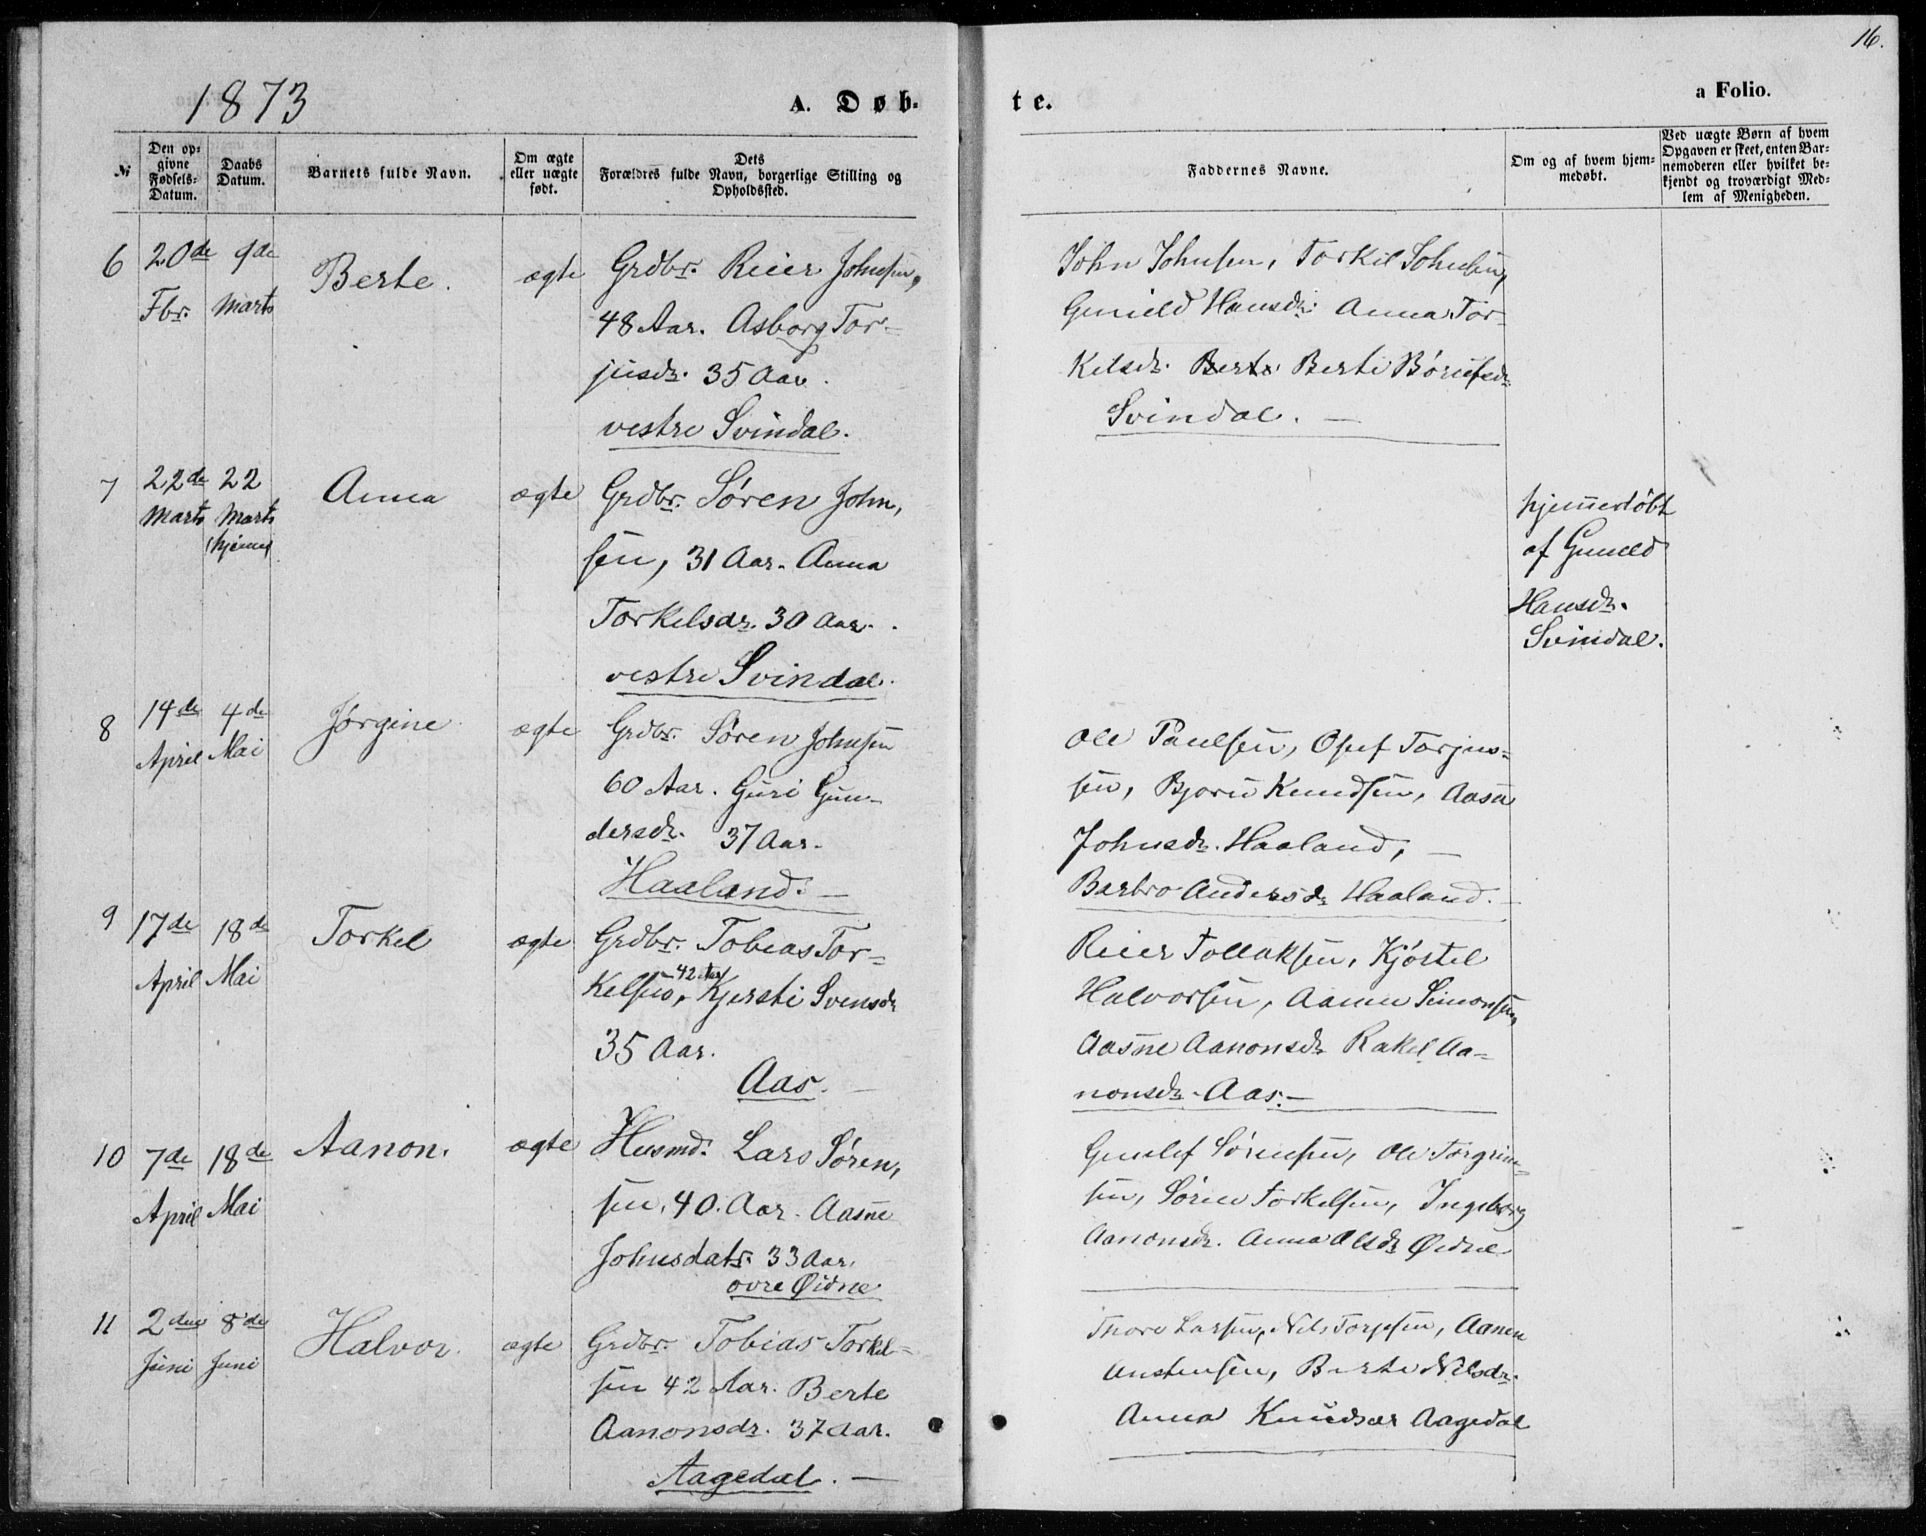 16.
1873
A. Døb-
te.
a Folio.
№
Den op-
givne
Fødsels-
Datum.
Daabs
Datum.
Barnets fulde Navn.
Om ægte
eller uægte
født.
Dets
Forældres fulde Navn, borgerlige Stilling og
Opholdssted.
Faddernes Navne.
Om og af hvem hjem-
medøbt.
Ved uægte Børn af hvem
Opgaven er skeet, enten Bar-
nemoderen eller hvilket be-
kjendt og troværdigt Med-
lem af Menigheden.
6
20de
Fbr.
9de
Marts
Berte.
ægte
Grdbr. Reier Johnsen,
48 Aar. Asborg Tor-
jusdr. 35 Aar.
vestre Svindal.
John Johnsen, Torkil Johnsen,
Gunild Hansdr. Anna Tor-
kelsdr. Berte Berte
Svindal. —
7
22de
Marts
22
Marts
hjemme
Anna
ægte
Grdbr. Søren John,
sen, 31 Aar. Anna
Torkelsdr. 30 Aar.
vestre Svindal.
hjemmedöbt
af Gunild
Hansdr.
Svindal.
8
14de
April
4de
Mai
Jørgine
ægte
Grdbr. Søren Johnsen
60 Aar. Guri Gun-
dersdr. 37 Aar.
Haaland. —
Ole Paulsen, Torjus-
sen, Bjorn Knudsen, Aasa
Johnsdr. Haaland, —
Barbro Andersdr Haaland. —
9
17de
April
18de
Mai
Torkel
ægte
Grdbr. Tobias Tor-
42 Aar
kelsen, Kjersti Svensdr
35 Aar.
Aas. —
Reier Tollaksen, Kjöstel
Halvorsen, Aanen Simonsen,
Aasne Aanonsdr Rakel Aa-
nonsdr. Aas. —
10
7de
April
18de
Mai
Aanon.
ægte
Husmd. Lars Søren,
sen, 40. Aar. Aasne
Johnsdatr. 33 Aar.
ovre Øidne
Gunlef Sörensen, Ole Torgrim-
sen, Sören Torkelsen, Ingeborg
Aanonsdr. Anna Olsdr Øidne
11
2den
Juni
8de
Juni
Halvor.
ægte
Grdbr. Tobias Torkel-
sen 42 Aar. Berte
Aanonsdr. 37 Aar.
Aagedal. —
Thore Larsen, Nils Aanen
Anstensen, Berte Nilsdr.
Anna Aagedal